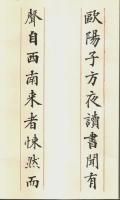 歐陽子方夜讀書聞有
聲自西南来者悚然而